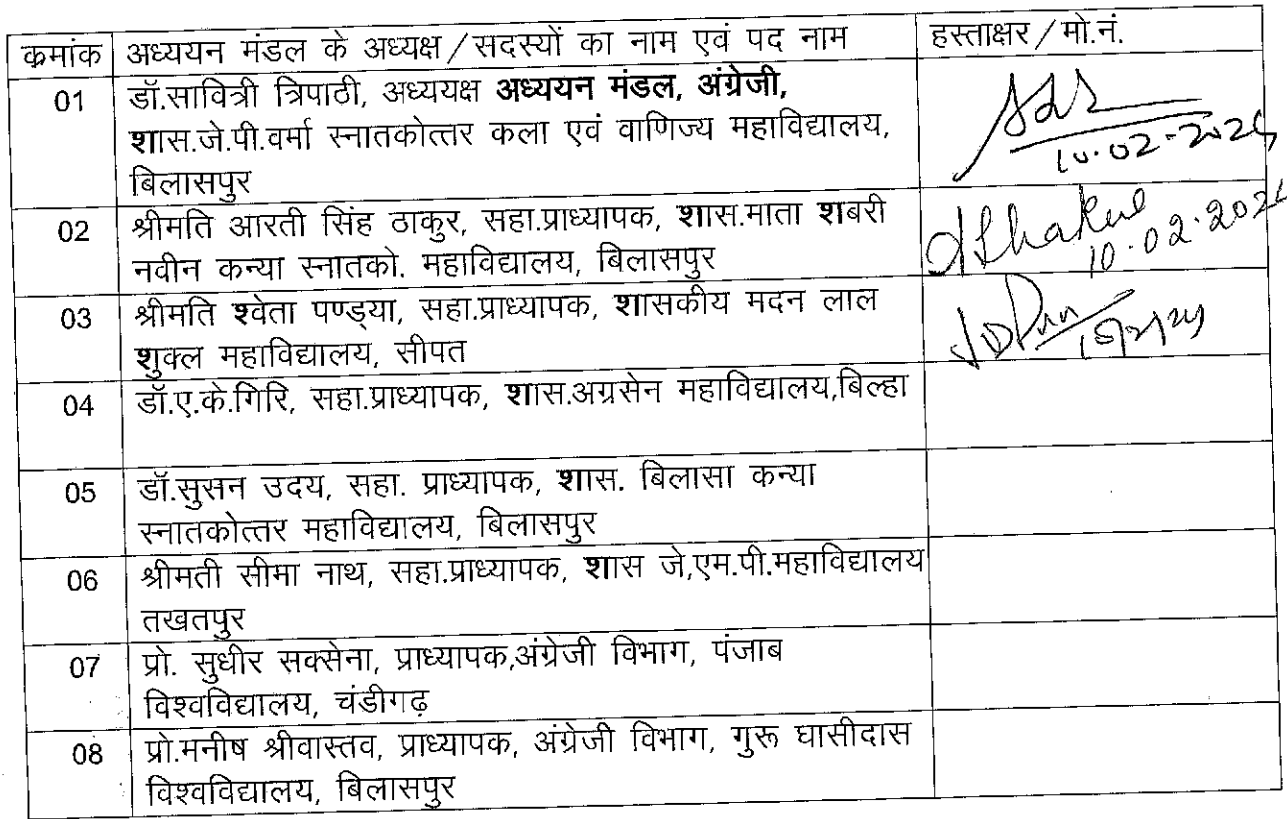 क्रमांक अध्ययन मंडल के अध्यक्ष / सदस्यों का नाम एवं पद नाम हस्ताक्षर / मो.नं.
01 डॉ.सावित्री त्रिपाठी, अध्ययक्ष अध्ययन मंडल, अंग्रेजी,
शास.जे.पी.वर्मा स्नातकोत्तर कला एवं वाणिज्य महाविद्यालय,
बिलासपुर
10.02-202
02 श्रीमति आरती सिंह ठाकुर, सहा.प्राध्यापक, शास.माता शबरी
नवीन कन्या स्नातको. महाविद्यालय, बिलासपुर
10.02.202
03 श्रीमति श्वेता पण्ड्या, सहा.प्राध्यापक, शासकीय मदन लाल
शुक्ल महाविद्यालय, सीपत
04 डॉ.ए.के.गिरि, सहा.प्राध्यापक, शास.अग्रसेन महाविद्यालय,बिल्हा
05 डॉ.सुसन उदय, सहा. प्राध्यापक, शास. बिलासा कन्या
स्नातकोत्तर महाविद्यालय, बिलासपुर
06 श्रीमती सीमा नाथ, सहा.प्राध्यापक, शास जे,एम.पी.महाविद्यालय
तखतपुर
07 प्रो. सुधीर सक्सेना, प्राध्यापक,अंग्रेजी विभाग, पंजाब
विश्वविद्यालय, चंडीगढ़
08 प्रो.मनीष श्रीवास्तव, प्राध्यापक, अंग्रेजी विभाग, गुरू घासीदास
विश्वविद्यालय, बिलासपुर